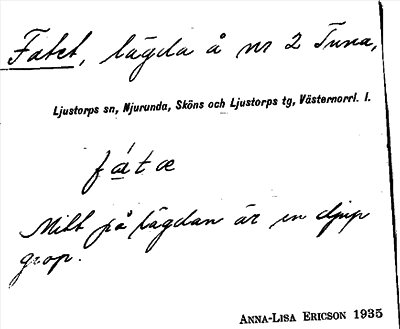 Fatet, lägda å nr 2 Tuna,
Ljustorps sn, Njurunda, Sköns och Ljustorps tg, Västernorrl. l.
fátæ
Mitt på lägdan är en djup
grop.
ANNA-LISA ERICSON 1935